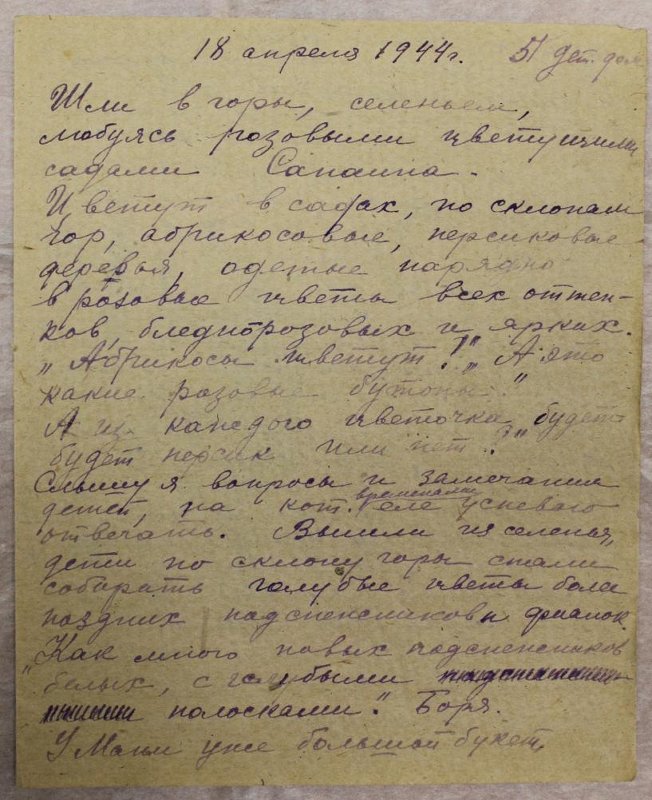 18 апреля 1944г. 51 дет. дом
Шли в горы, селеньем,
любуясь розовыми цветущими
садами
Цветут в садах, по склонам
гор, абрикосовые, персиковые
деревья, одетые нарядно
в розовые цветы всех оттен-
ков, бледнорозовых и ярких.
„Абрикосы цветут!" „А это
какие розовые бутоны."
А из каждого цветочка будет
будет персик или нет?"
Слышу я вопросы и замечания
детей, на кот. временами еле успеваю
отвечать. Вышли из селенья,
дети по склону горы стали
собирать голубые цветы более
поздних подснежников и фиалок.
„Как много новых подснежников
белых, с голубыми
полосками." Боря.
У Мани уже большой букет.